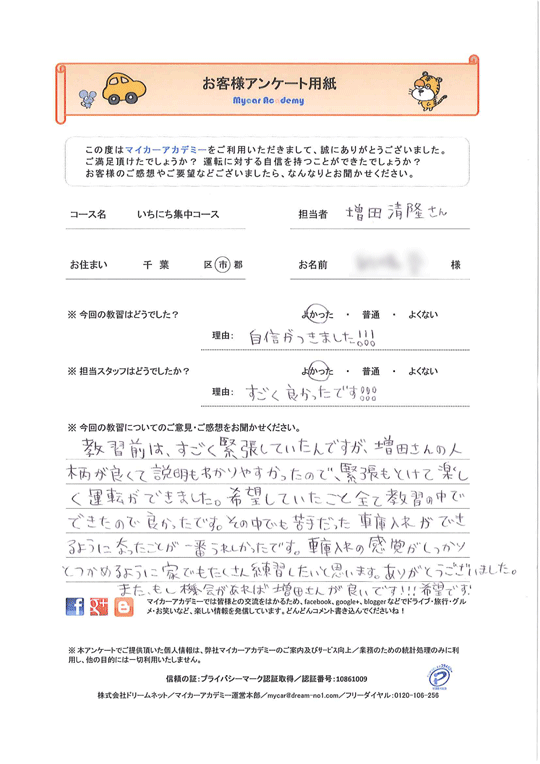 お客様アンケート用紙
Mycar Academy
この度はマイカーアカデミーをご利用いただきまして、誠にありがとうございました。
ご満足頂けたでしょうか？ 運転に対する自信を持つことができたでしょうか？
お客様のご感想やご要望などございましたら、なんなりとお聞かせください。
コース名 いちにち集中コース 担当者 増田清隆さん
お住まい 千葉 区・市・郡 お名前 様
※ 今回の教習はどうでした？ よかった ・ 普通 ・ よくない
理由: 自信がつきました!!!
※ 担当スタッフはどうでしたか？ よかった ・ 普通 ・ よくない
理由: すごく良かったです!!!
※ 今回の教習についてのご意見・ご感想をお聞かせください。
教習前は、すごく緊張していたんですが、増田さんの人
柄が良くて説明もわかりやすかったので、緊張もとけて楽し
く運転ができました。希望していたこと全て教習の中で
できたので良かったです。その中でも苦手だった車庫入れができ
るようになったことが一番うれしかったです。車庫入れの感覚がしっかり
とつかめるように家でもたくさん練習したいと思います。ありがとうございました。
また、もし機会があれば増田さんが良いです!!!希望です!
マイカーアカデミーでは皆様との交流をはかるため、facebook、google+、bloggerなどでドライブ・旅行・グル
メ・お笑いなど、楽しい情報を発信しています。どんどんコメント書き込んでくださいね！
※ 本アンケートでご提供頂いた個人情報は、弊社マイカーアカデミーのご案内及びサービス向上／業務のための統計処理のみに利
用し、他の目的には一切利用いたしません。
信頼の証：プライバシーマーク認証取得／認証番号：10861009
株式会社ドリームネット／マイカーアカデミー運営本部／mycar@dream-no1.com／フリーダイヤル：0120-106-256